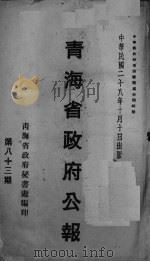 中華民國二十八年十月十日出版
青海省政府公報
青海省政府秘書處編印
第八十三期